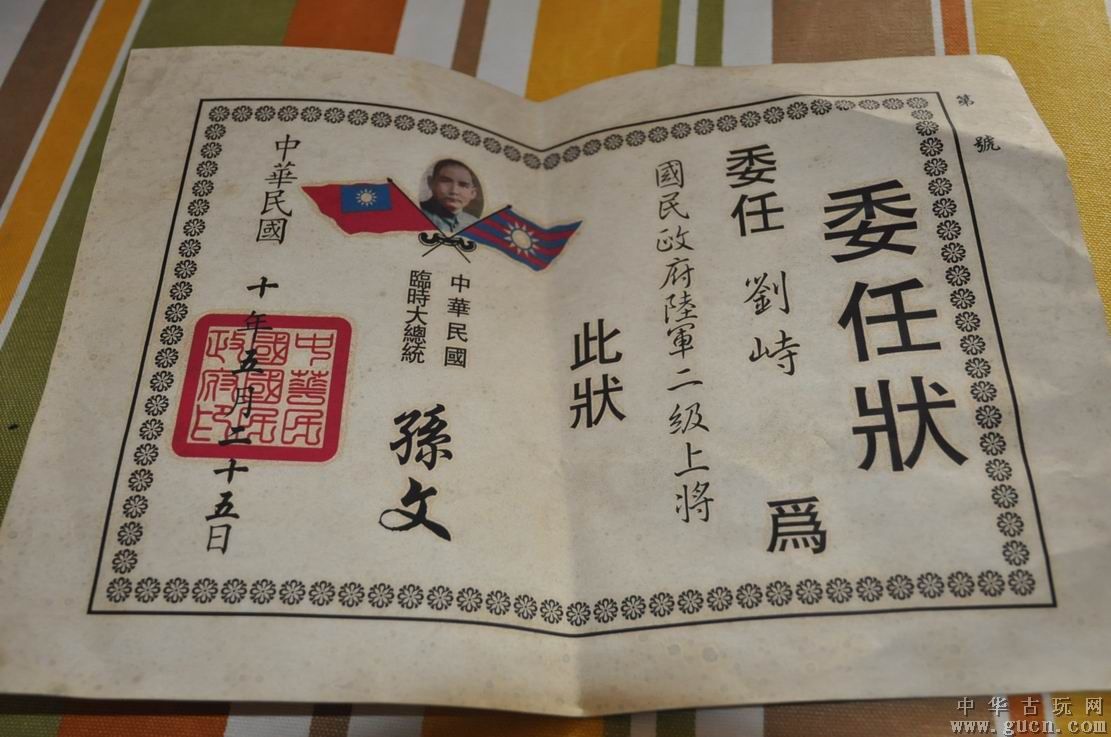 第 號
委任狀
委任 劉峙 爲
國民政府陸軍二級上將
此狀
中華民國
臨時大總統
孫文
中華民國 十年五月二十五日
中華民
國國民
政府印
中华古玩网
www.gucn.com